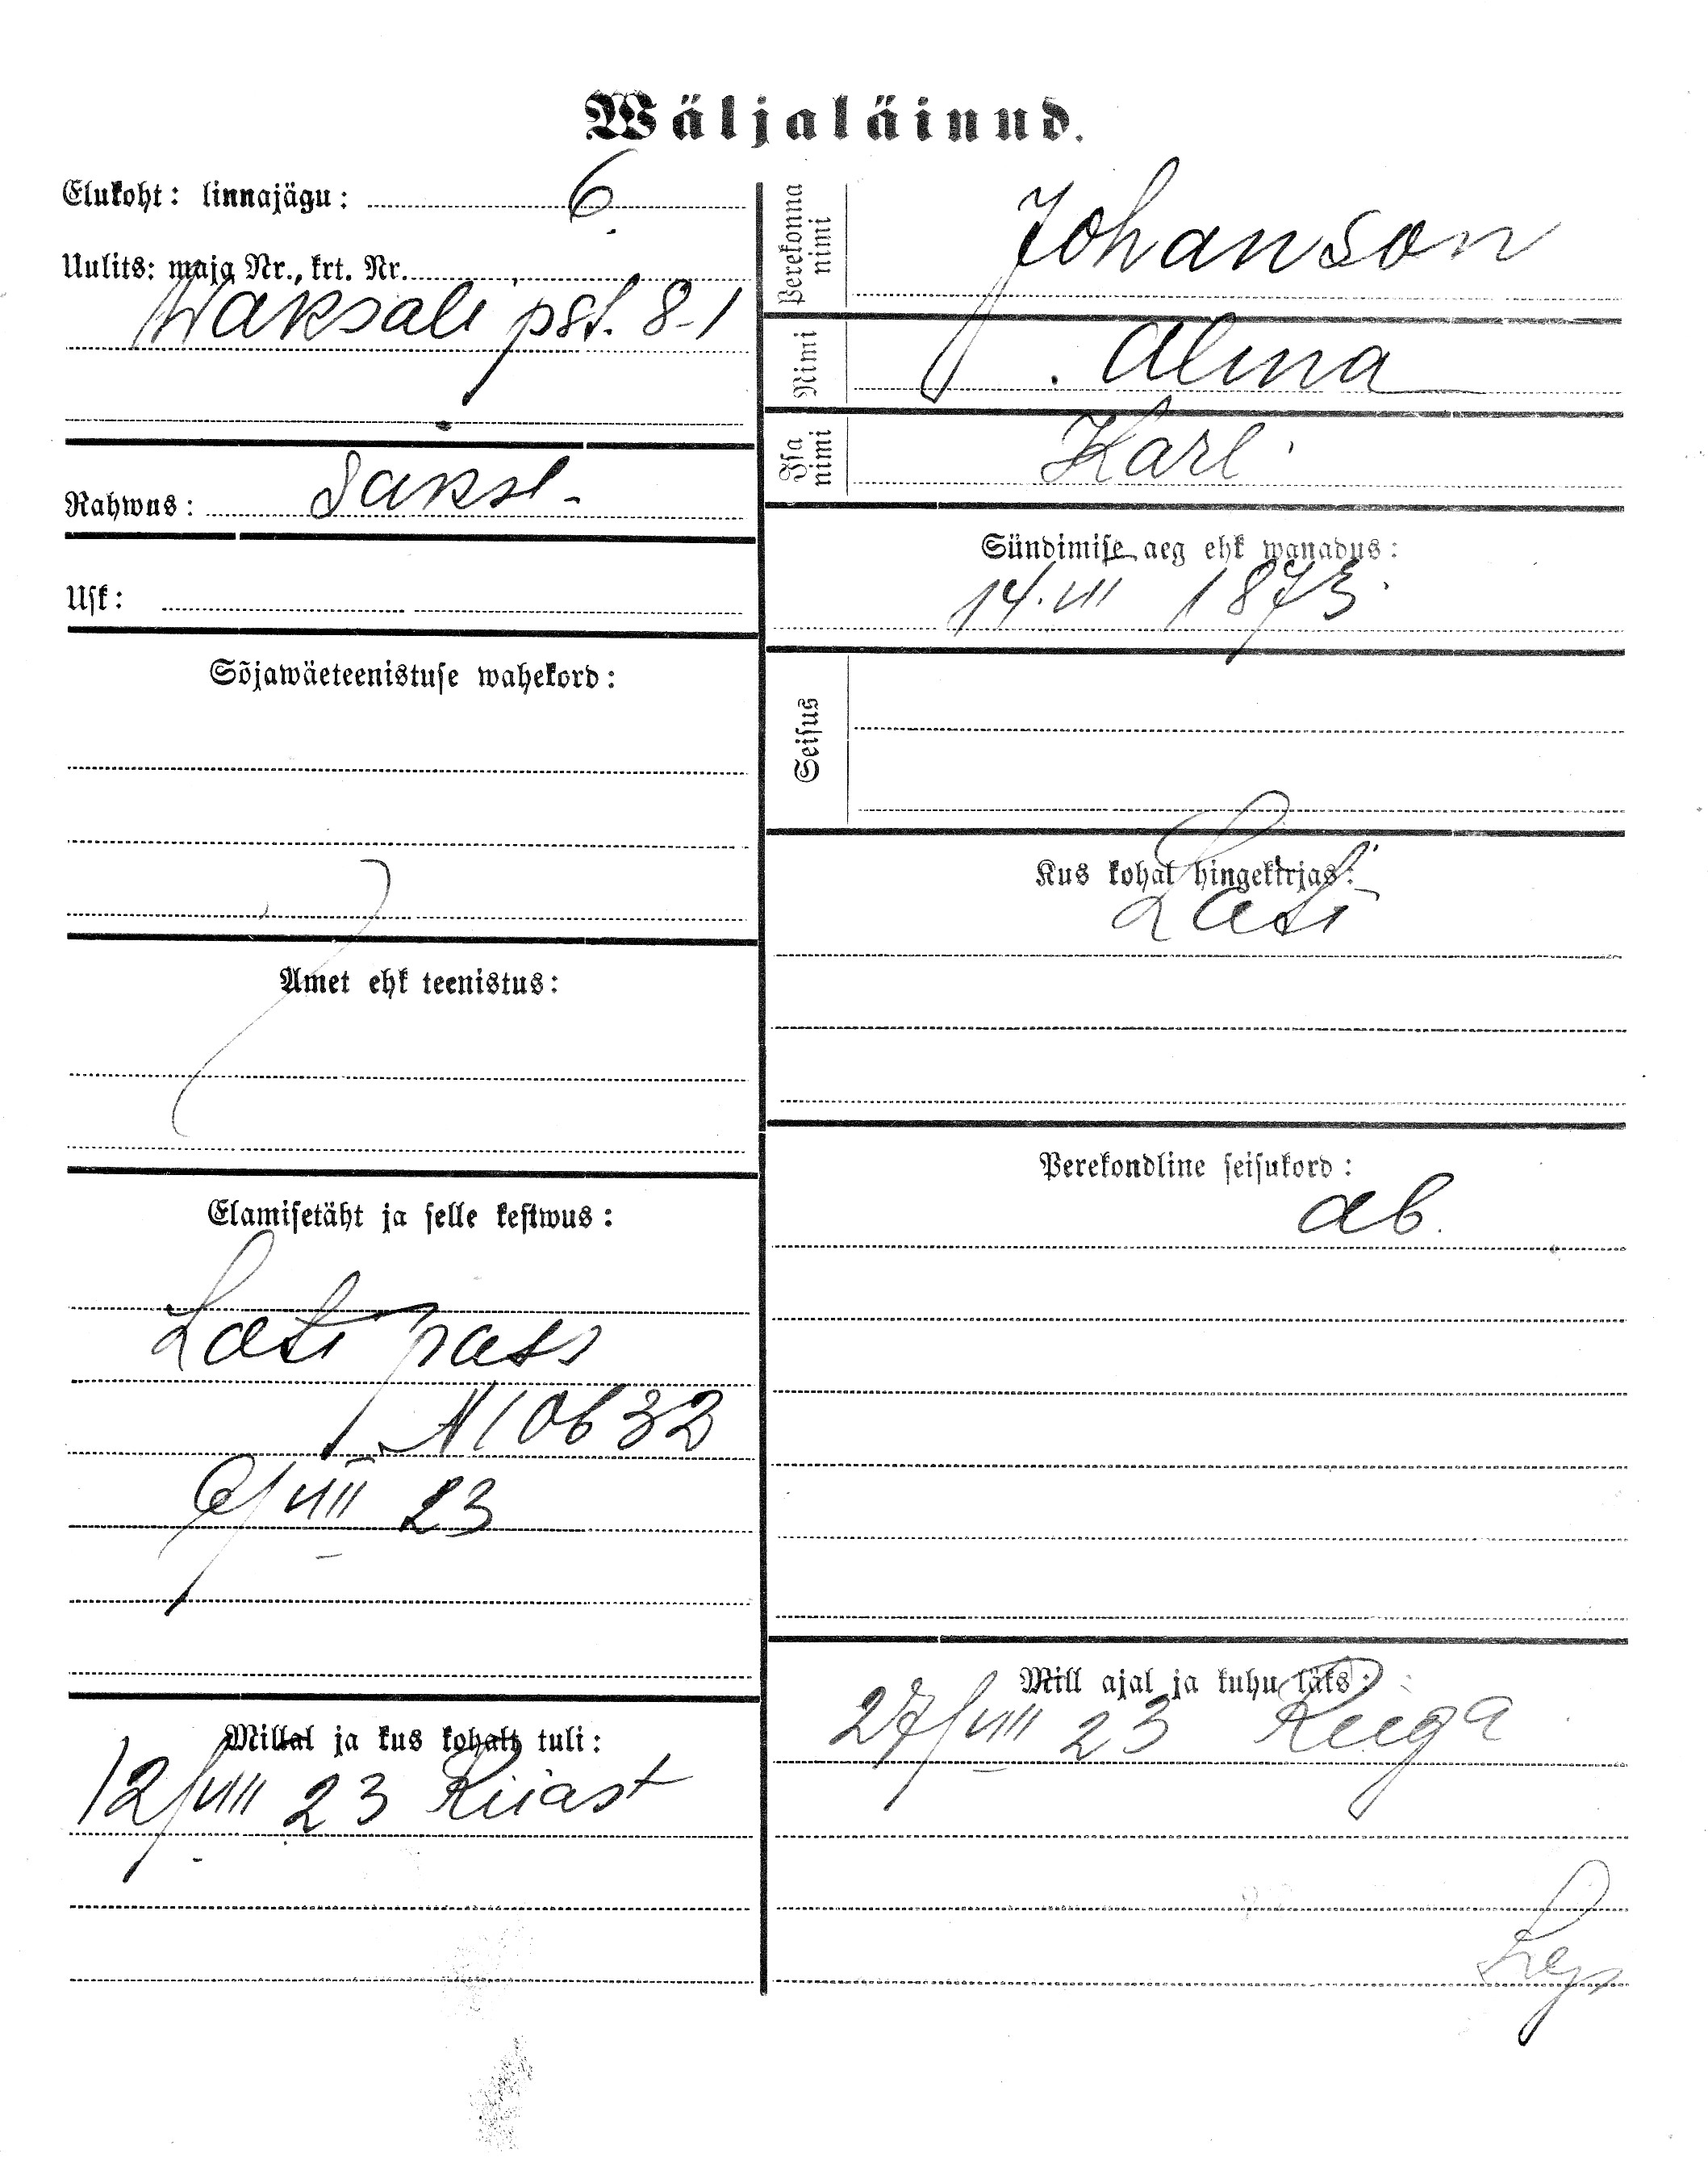 Wäljaläinud.
Elukoht: linnajägu: 6
Uulits: maja Nr., krt. Nr.
Waksali pst. 8-1
Rahwus: Saksl.
Usk:
Sõjawäeteenistuse wahekord:
Amet ehk teenistus:
Elamisetäht ja selle kestwus:
Läti pass
N 10632
6/VIII 23
Millal ja kus kohalt tuli:
12/VIII 23 Riiast
Perekonna nimi Johanson
Nimi Alma
Isa nimi Karl
Sündimise aeg ehk wanadus:
14. VII 1873
Seisus
Kus kohal hingekirjas:
Läti
Perekondline seisukord:
ab.
Mill ajal ja kuhu läks:
27/VIII 23 Riiga